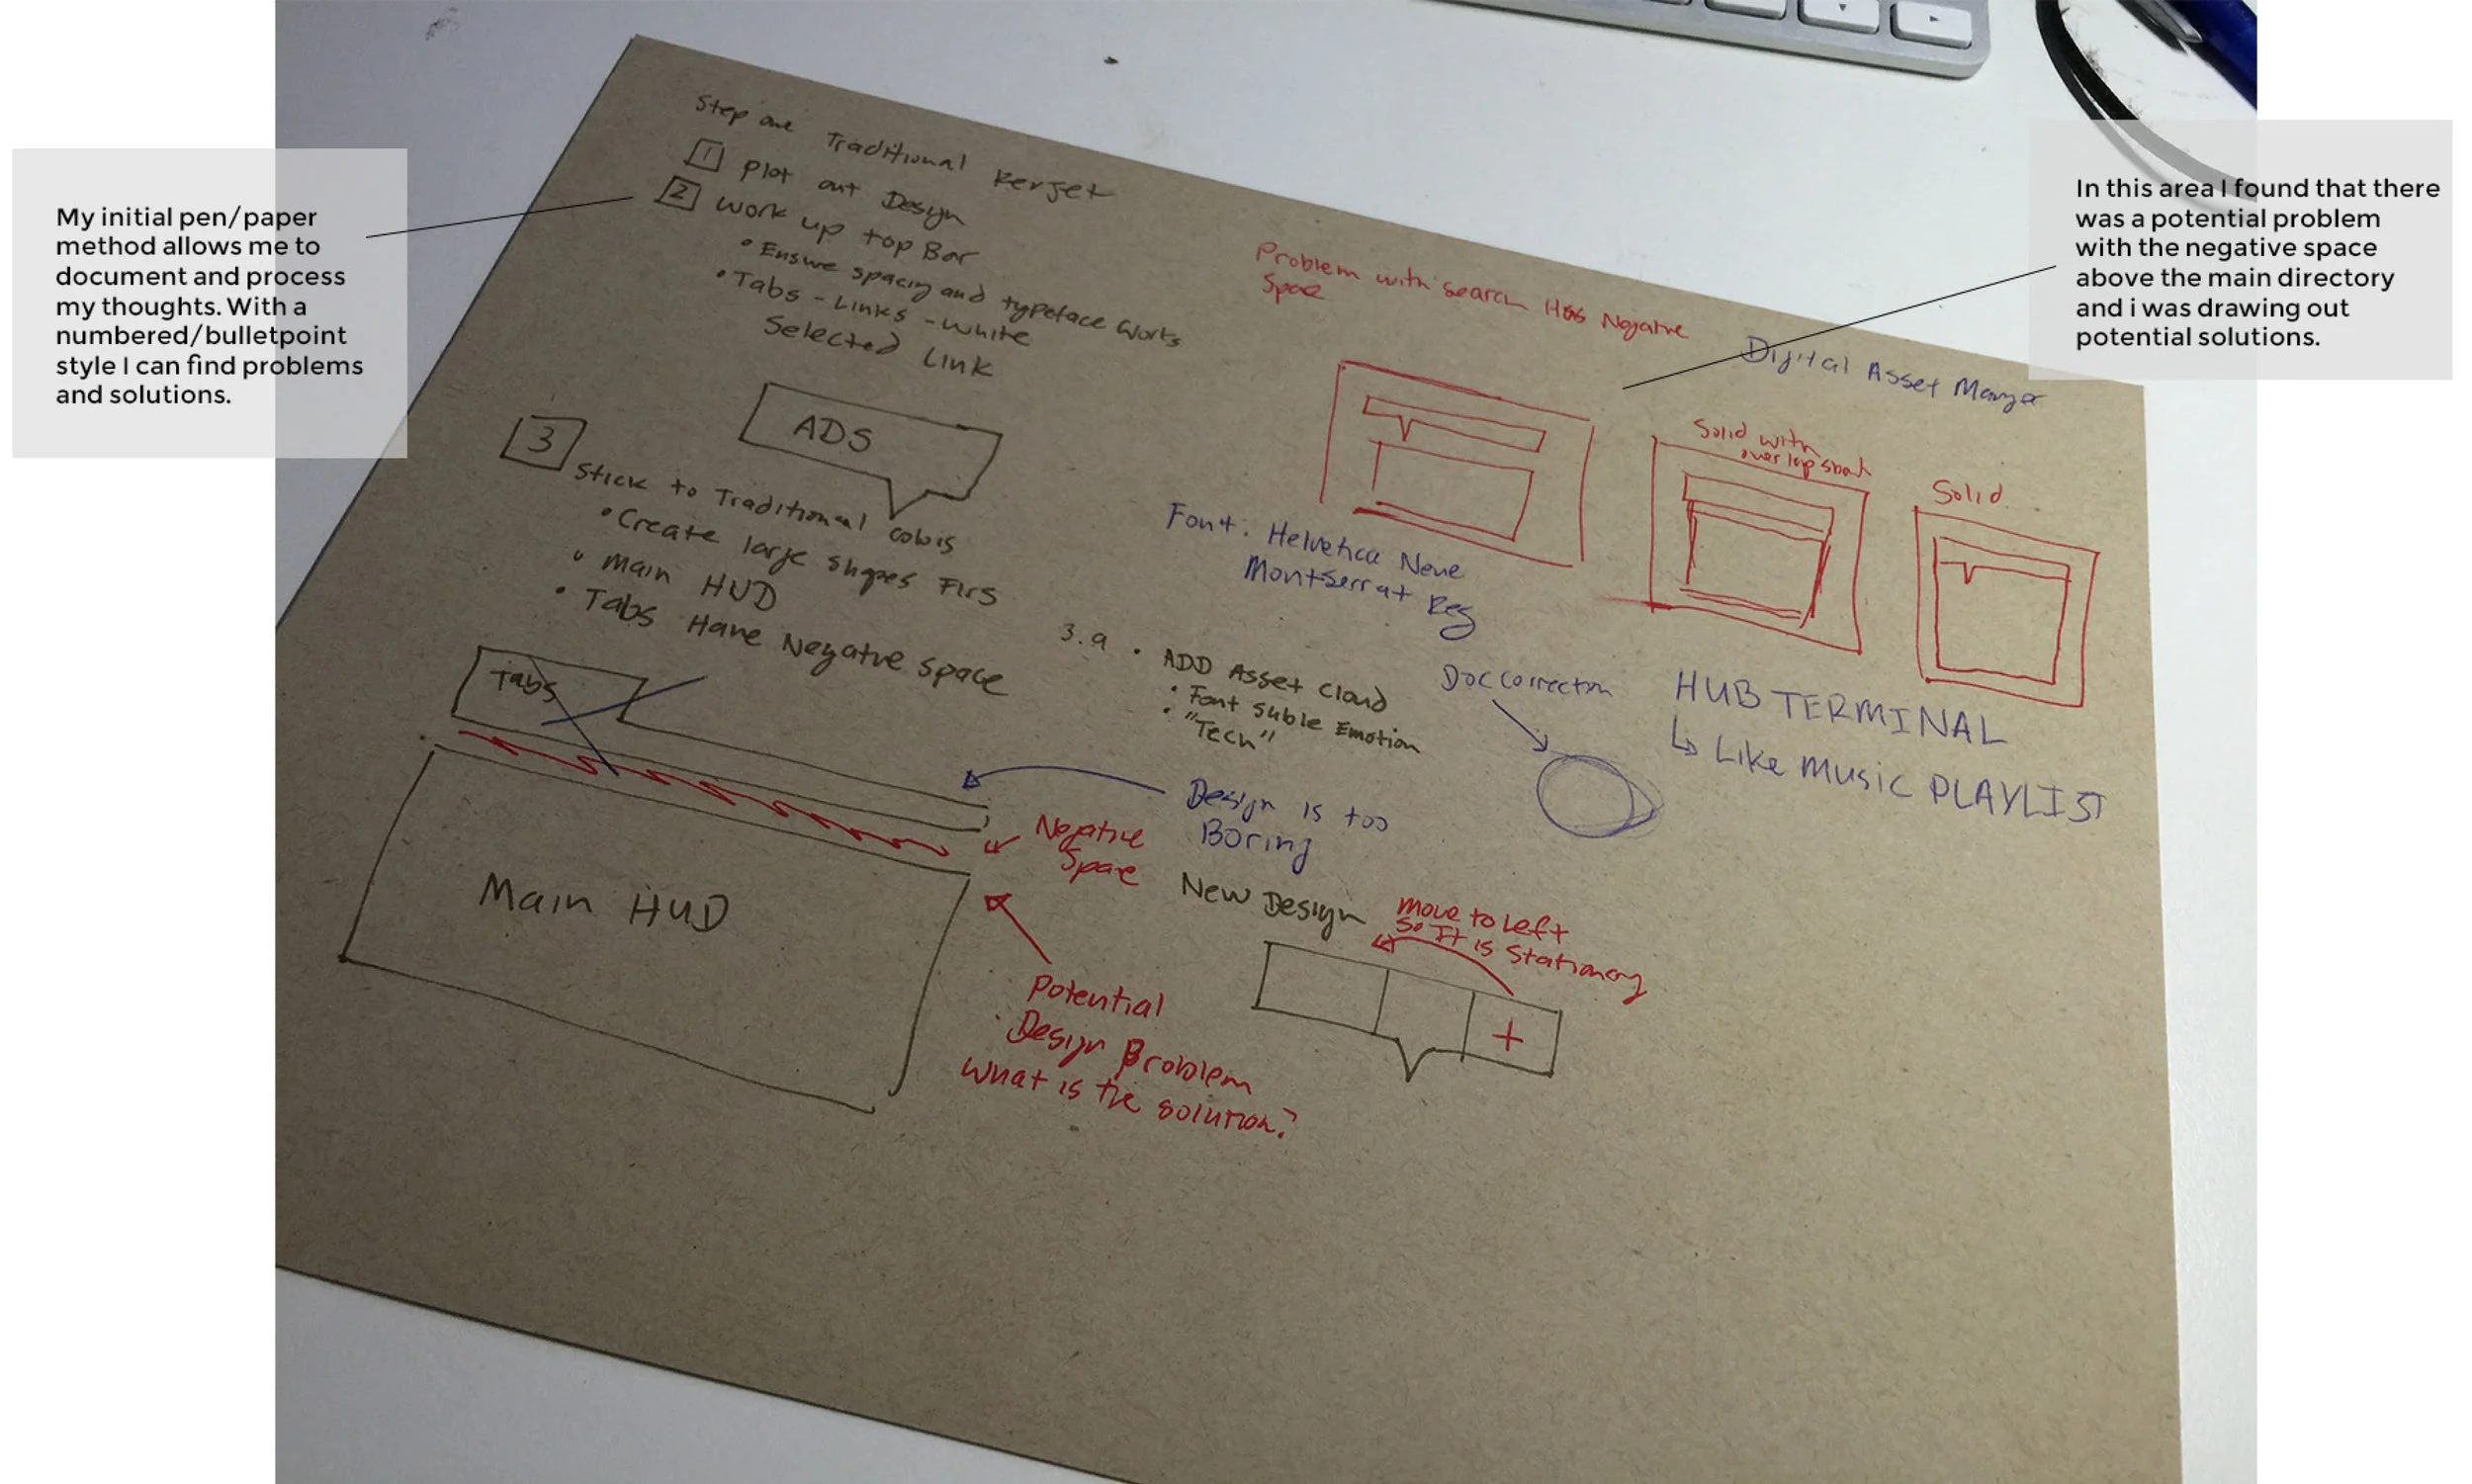 My initial pen/paper
method allows me to
document and process
my thoughts. With a
numbered/bulletpoint
style I can find problems
and solutions.
In this area I found that there
was a potential problem
with the negative space
above the main directory
and i was drawing out
potential solutions.
Step one Traditional
1 Plot out Design
2 Work up top Bar
• Ensure spacing and typeface Works
• Tabs - Links - White
Selected Link
ADS
3
Stick to Traditional colors
• Create large shapes Firs
• Main HUD
• Tabs Have Negative Space
Tabs
Main HUD
Problem with search Has Negative
Space
Digital Asset Manager
Solid with
overlap
Solid
Font: Helvetica Neue
Montserrat Reg
3.a • ADD Asset Cloud
• Font Emotion
• "Tech"
Doc correction
HUB TERMINAL
↳ Like MUSIC PLAYLIST
Design is too
Boring
Negative
Space
New Design
Move to Left
So It is Stationary
+
Potential
Design Problem
What is the solution?